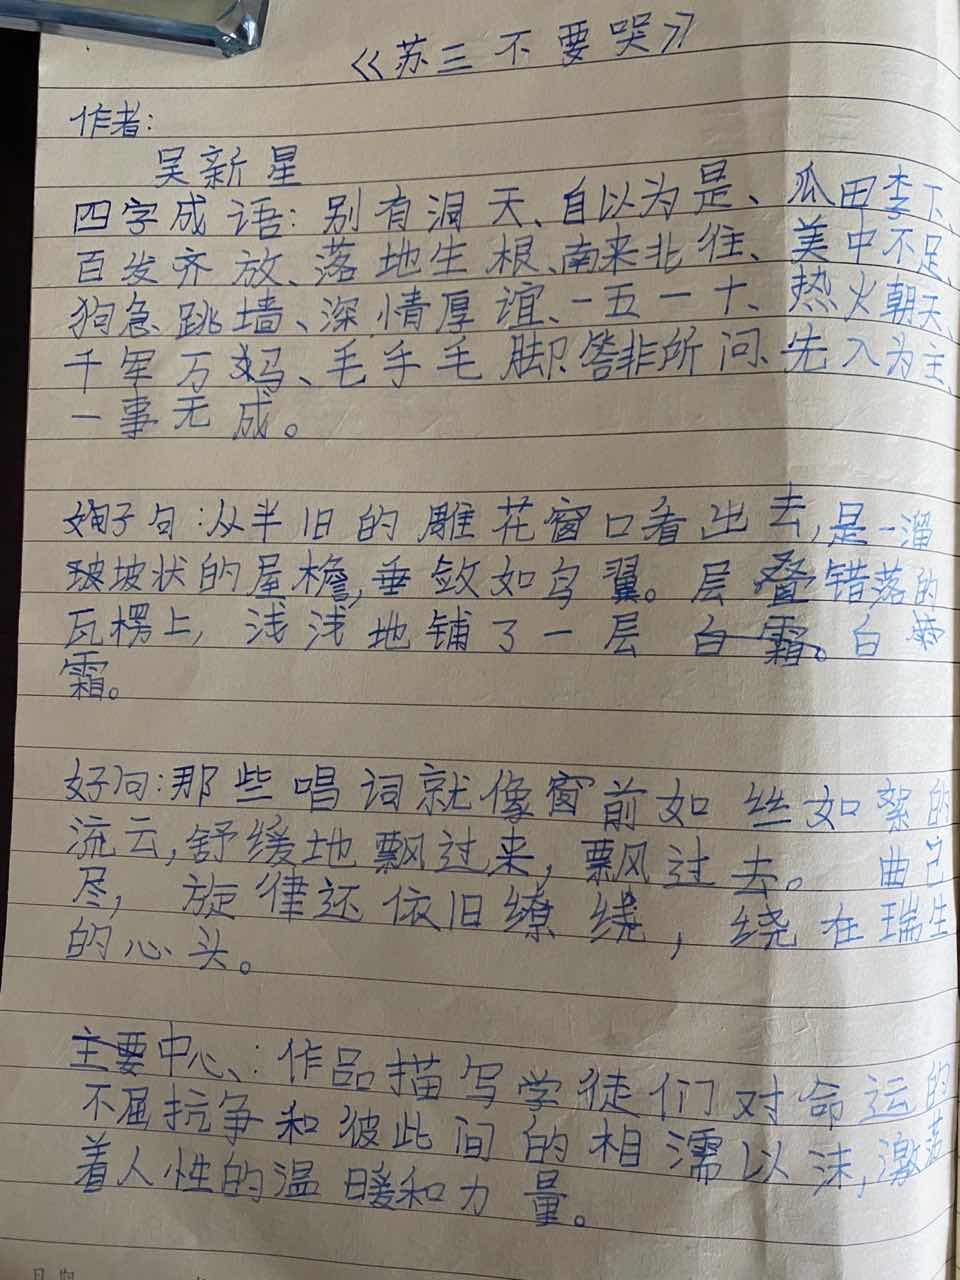 《苏三不要哭》
作者：
吴新星
四字成语：别有洞天、自以为是、瓜田李下
百发齐放、落地生根、南来北往、美中不足
狗急跳墙、深情厚谊、一五一十、热火朝天、
千军万马、毛手毛脚、答非所问、先入为主、
一事无成。
好句：从半旧的雕花窗口看出去，是一溜
坡状的屋檐，垂敛如鸟翼。层叠错落的
瓦楞上，浅浅地铺了一层白霜。白
霜。
好句：那些唱词就像窗前如丝如絮的
流云，舒缓地飘过来，飘过去。曲已
尽，旋律还依旧缭绕，绕在瑞生
的心头。
主要中心：作品描写学徒们对命运的
不屈抗争和彼此间的相濡以沫，激荡
着人性的温暖和力量。